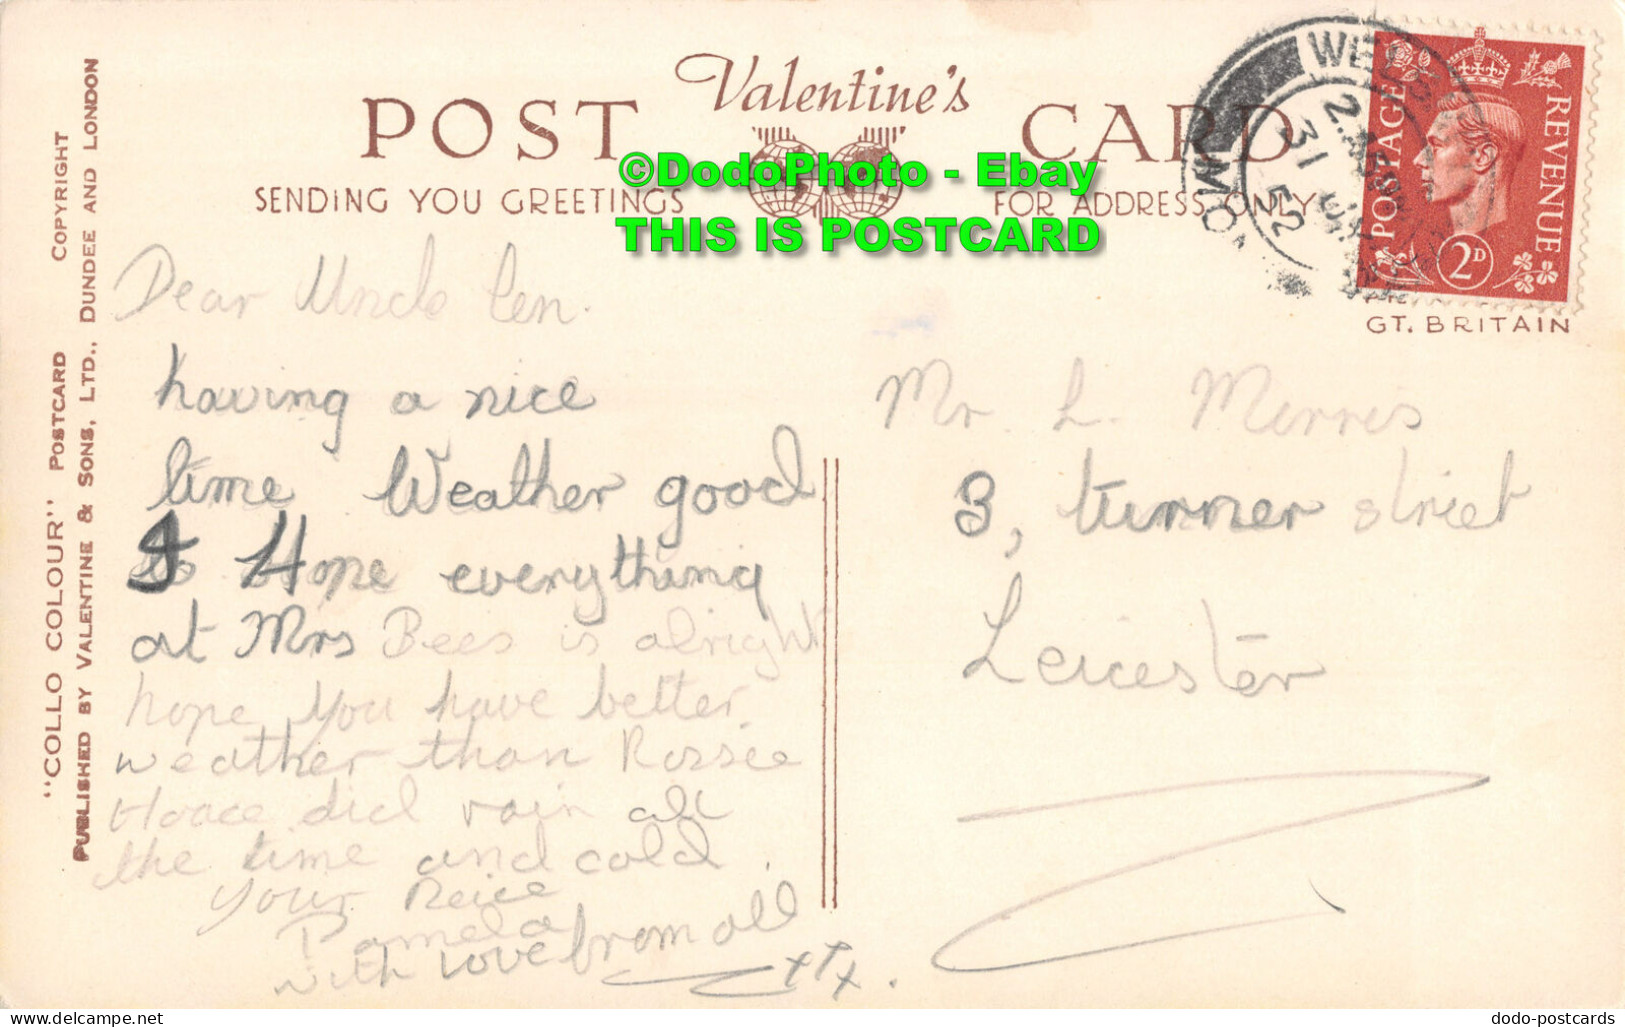 "COLLO COLOUR" POSTCARD COPYRIGHT
PUBLISHED BY VALENTINE & SONS, LTD., DUNDEE AND LONDON
Valentine's
POST CARD
SENDING YOU GREETINGS
FOR ADDRESS ONLY
©DodoPhoto - Ebay
THIS IS POSTCARD
31
52
POSTAGE
REVENUE
2D
GT. BRITAIN
Dear Uncle Len.
having a nice
time Weather good
I Hope everything
at Mrs Bees is alright
hope you have better
weather than Rossee
did rain all
the time and cold
your Neice
Pamela
with Love from all
xxx.
Mr. L. Morris
3, turner street
Leicester
dodo-postcards
delcampe.com